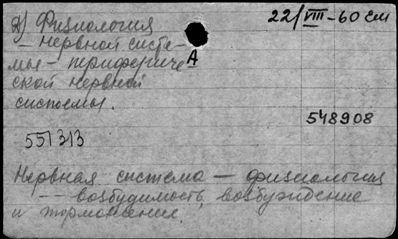 2) Физиология
– нервной систе-
мы – перифериче
ской нервной
системы.
A
22/VIII – 60 см
548908
551313
Нервная система – физиология
– – возбудимость, возбуждение
и торможение.